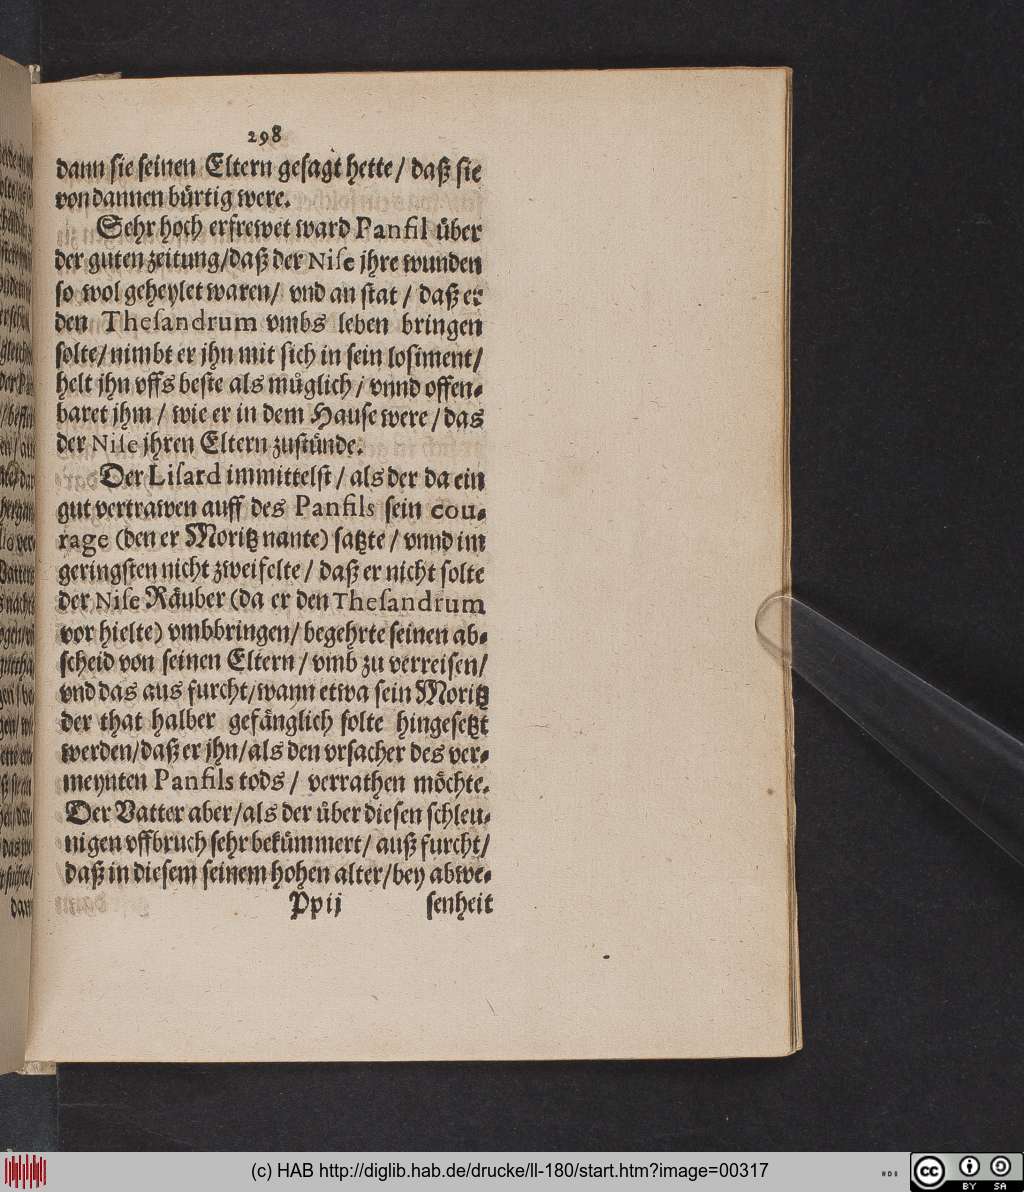 298
dann sie seinen Eltern gesagt hette / daß sie
von dannen bürtig were.
Sehr hoch erfrewet ward Panfil über
der guten zeitung/daß der Niſe jhre wunden
so wol geheylet waren/ vnd an stat / daß er
den Theſandrum vmbs leben bringen
solte/ nimbt er jhn mit sich in sein losiment/
helt jhn vffs beste als müglich / vnnd offen-
baret jhm / wie er in dem Hause were / das
der Niſe jhren Eltern zustünde.
Der Liſard immittelst / als der da ein
gut vertrawen auff des Panfils sein cou-
rage (den er Moritz nante) satzte / vnnd im
geringsten nicht zweifelte / daß er nicht solte
der Niſe Räuber (da er den Theſandrum
vor hielte) vmbbringen/ begehrte seinen ab-
scheid von seinen Eltern / vmb zu verreisen/
vnd das aus furcht/wann etwa sein Moritz
der that halber gefänglich solte hingesetzt
werden/daß er jhn/als den vrsacher des ver-
meynten Panfils tods / verrathen möchte.
Der Vatter aber/als der über diesen schleu-
nigen vffbruch sehr bekümmert/ auß furcht/
daß in diesem seinem hohen alter/bey abwe-
Ppij senheit
(c) HAB http://diglib.hab.de/drucke/ll-180/start.htm?image=00317
cc BY SA